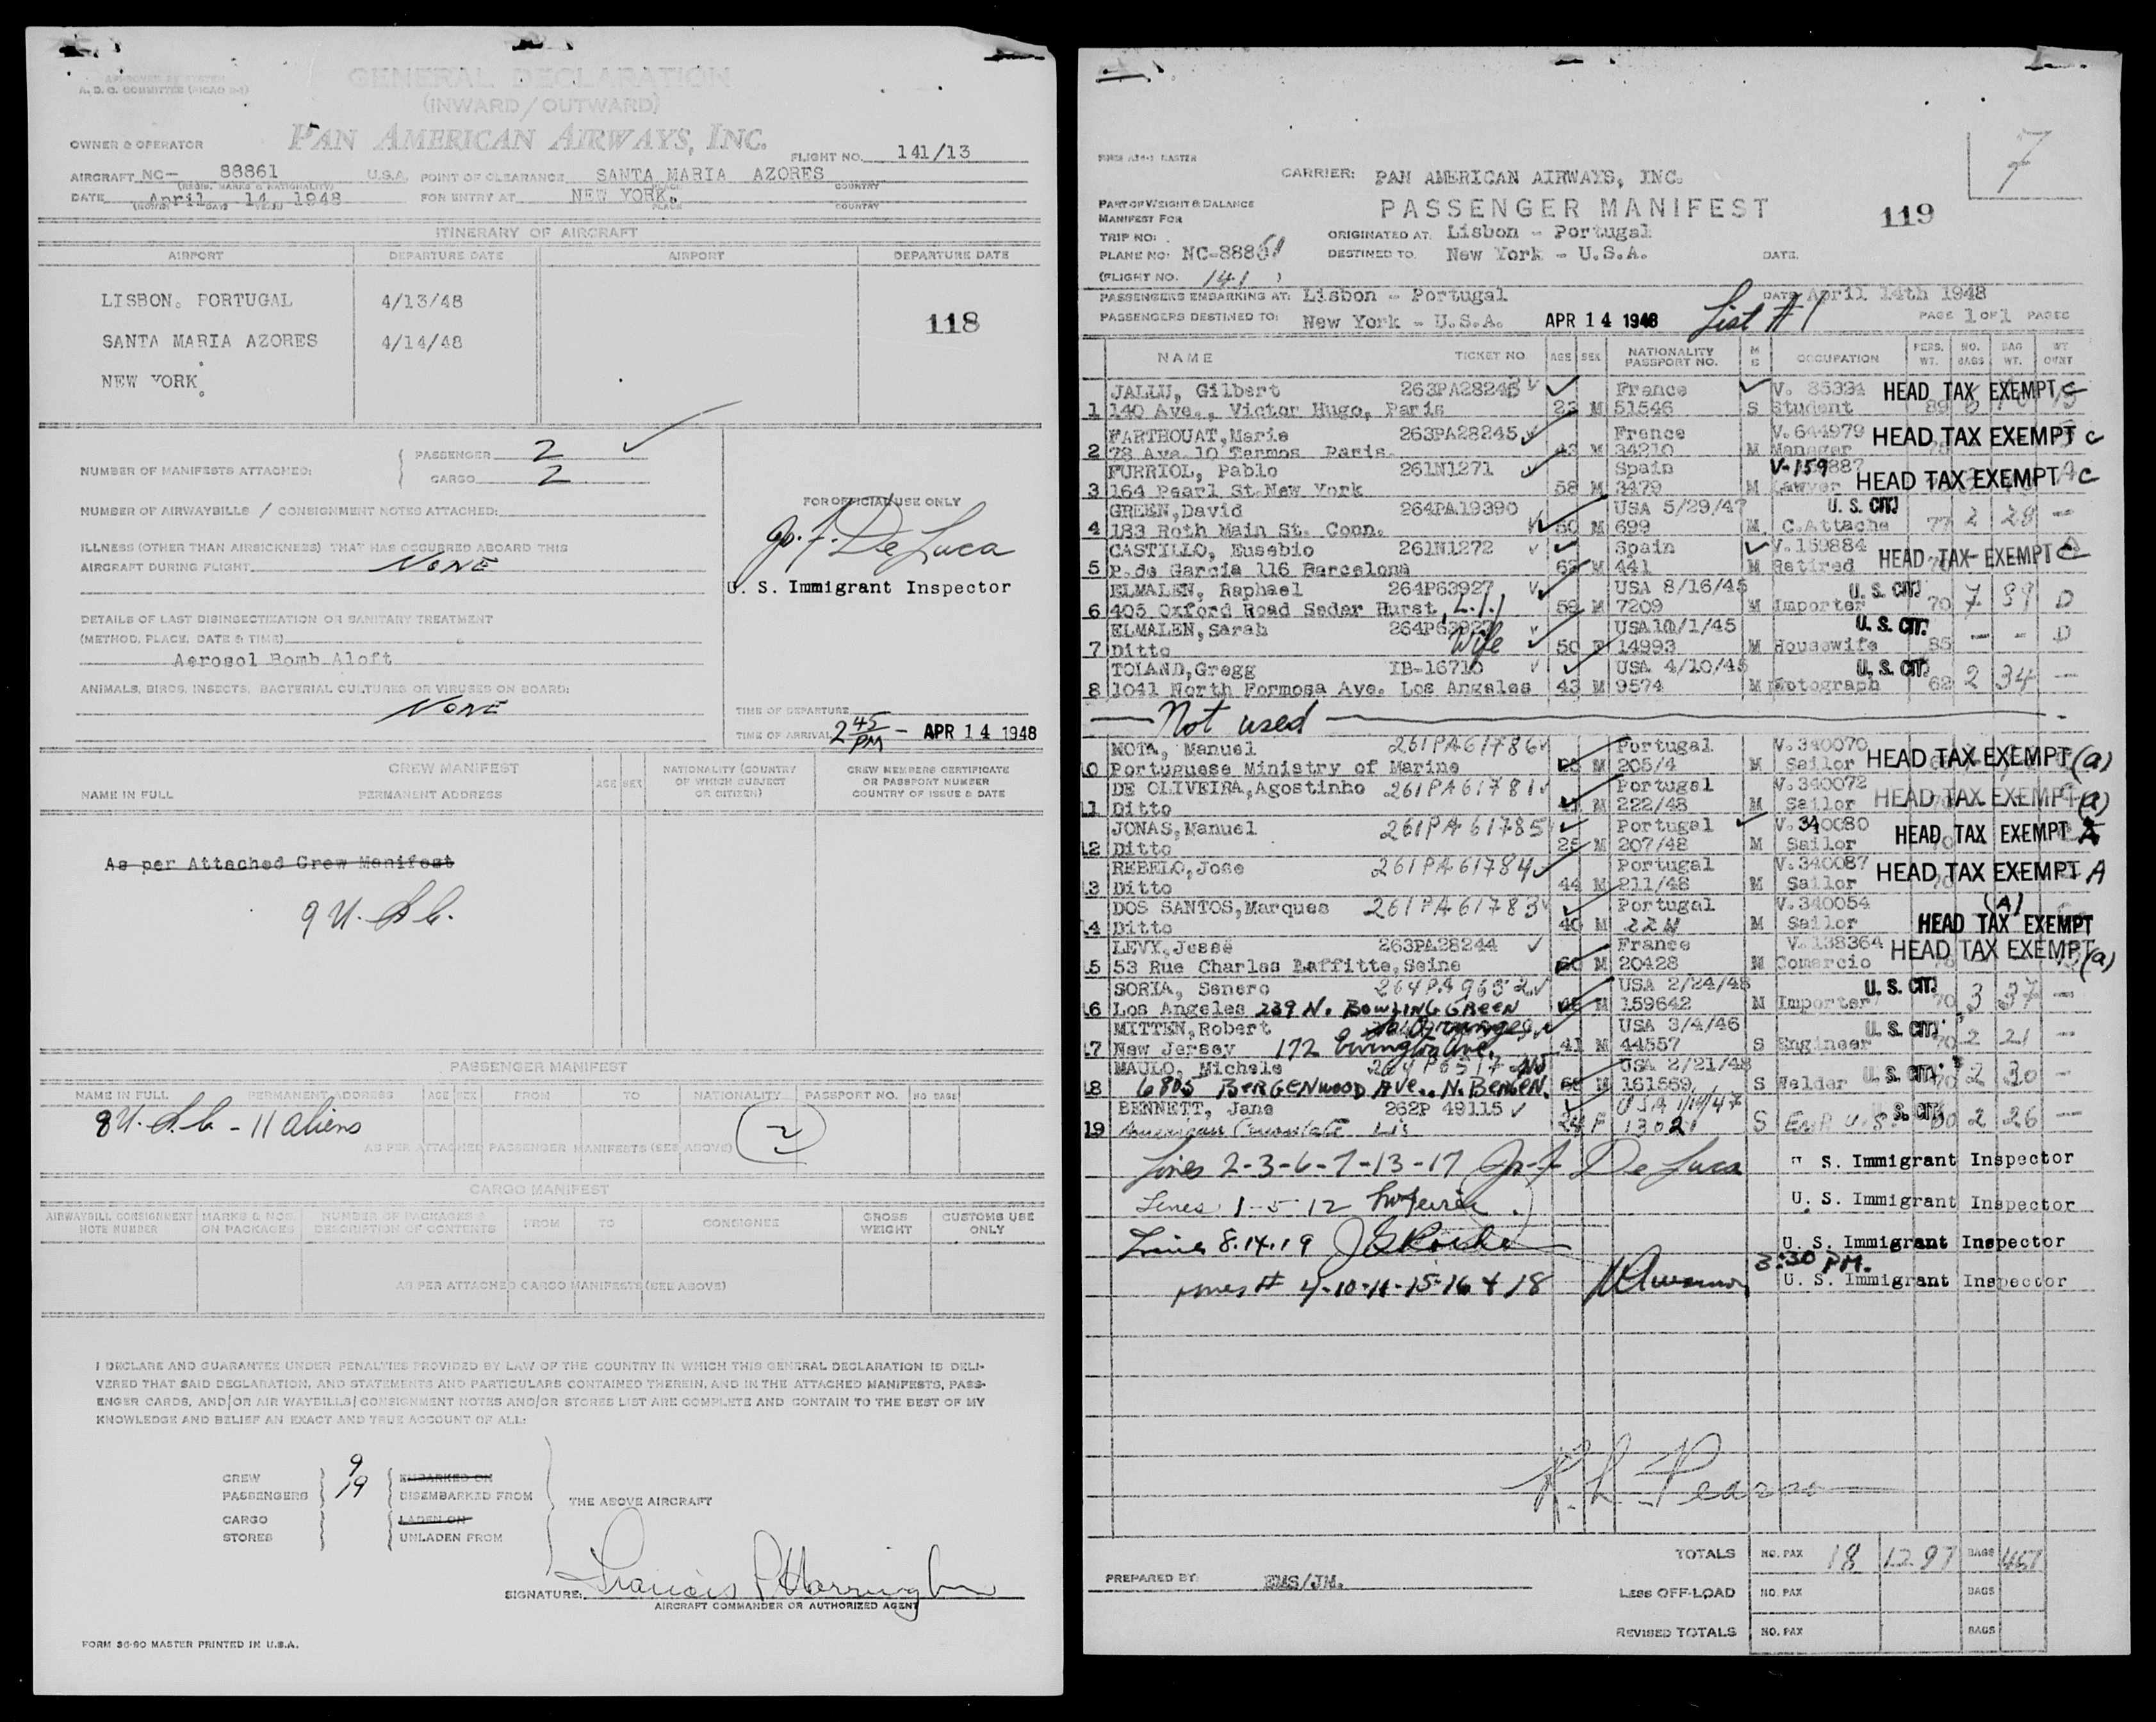 APPROVED AS SYSTEM
A. D. C. COMMITTEE (PICAO 2-1)
GENERAL DECLARATION
(INWARD/OUTWARD)
OWNER & OPERATOR PAN AMERICAN AIRWAYS, INC.
FLIGHT NO. 141/13
AIRCRAFT NC- 88861 U.S.A. POINT OF CLEARANCE SANTA MARIA AZORES
(REGIS. MARKS & NATIONALITY) PLACE COUNTRY
DATE April 14 1948 FOR ENTRY AT NEW YORK.
(MONTH) DATE YEAR PLACE COUNTRY
ITINERARY OF AIRCRAFT
AIRPORT DEPARTURE DATE AIRPORT DEPARTURE DATE
LISBON. PORTUGAL 4/13/48
118
SANTA MARIA AZORES 4/14/48
NEW YORK
NUMBER OF MANIFESTS ATTACHED: PASSENGER 2
CARGO 2
FOR OFFICIAL USE ONLY
NUMBER OF AIRWAYBILLS / CONSIGNMENT NOTES ATTACHED:
Jo. F. De Luca
ILLNESS (OTHER THAN AIRSICKNESS) THAT HAS OCCURRED ABOARD THIS
AIRCRAFT DURING FLIGHT NONE
U. S. Immigrant Inspector
DETAILS OF LAST DISINSECTIZATION OR SANITARY TREATMENT
(METHOD, PLACE, DATE & TIME)
Aerosol Bomb Aloft
ANIMALS, BIRDS, INSECTS, BACTERIAL CULTURES OR VIRUSES ON BOARD:
NONE
TIME OF DEPARTURE
TIME OF ARRIVAL 2 45 PM - APR 14 1948
CREW MANIFEST
NAME IN FULL PERMANENT ADDRESS AGE SEX NATIONALITY (COUNTRY OF WHICH SUBJECT OR CITIZEN) CREW MEMBERS CERTIFICATE OR PASSPORT NUMBER COUNTRY OF ISSUE & DATE
As per Attached Crew Manifest
9 U. S. C.
PASSENGER MANIFEST
NAME IN FULL PERMANENT ADDRESS AGE SEX FROM TO NATIONALITY PASSPORT NO. NO BAGS
8 U. S. C - 11 aliens 2
AS PER ATTACHED PASSENGER MANIFESTS (SEE ABOVE)
CARGO MANIFEST
AIRWAYBILL CONSIGNMENT NOTE NUMBER MARKS & NOS. ON PACKAGES NUMBER OF PACKAGES & DESCRIPTION OF CONTENTS FROM TO CONSIGNEE GROSS WEIGHT CUSTOMS USE ONLY
AS PER ATTACHED CARGO MANIFESTS (SEE ABOVE)
I DECLARE AND GUARANTEE UNDER PENALTIES PROVIDED BY LAW OF THE COUNTRY IN WHICH THIS GENERAL DECLARATION IS DELI-
VERED THAT SAID DECLARATION, AND STATEMENTS AND PARTICULARS CONTAINED THEREIN, AND IN THE ATTACHED MANIFESTS, PASS-
ENGER CARDS, AND/OR AIR WAYBILLS/CONSIGNMENT NOTES AND/OR STORES LIST ARE COMPLETE AND CONTAIN TO THE BEST OF MY
KNOWLEDGE AND BELIEF AN EXACT AND TRUE ACCOUNT OF ALL:
CREW 9 EMBARKED ON
PASSENGERS 19 DISEMBARKED FROM
THE ABOVE AIRCRAFT
CARGO LADEN ON
STORES UNLADEN FROM
SIGNATURE: Francis P Harrington
AIRCRAFT COMMANDER OR AUTHORIZED AGENT
FORM 36-90 MASTER PRINTED IN U.S.A.
7
CARRIER: PAN AMERICAN AIRWAYS, INC.
PART OF WEIGHT & BALANCE
MANIFEST FOR
PASSENGER MANIFEST 119
TRIP NO: ORIGINATED AT. Lisbon - Portugal
PLANE NO: NC-88861 DESTINED TO. New York - U.S.A. DATE.
(FLIGHT NO. 141 )
PASSENGERS EMBARKING AT: Lisbon - Portugal DATE April 14th 1948
PASSENGERS DESTINED TO: New York - U.S.A. APR 14 1948 List #1 PAGE 1 OF 1 PAGES
NAME TICKET NO. AGE SEX NATIONALITY PASSPORT NO. M S OCCUPATION PERS. WT. NO. BAGS BAG WT. WT OVNT
JALLU, Gilbert 263PA28246 France V. 85394 HEAD TAX EXEMPT C
1 140 Ave., Victor Hugo, Paris 23 M 51546 S Student
FARTHOUAT, Marie 263PA28245 France V.644979 HEAD TAX EXEMPT C
2 78 Ave 10 Termos Paris. 43 M 34210 M Manager
FURRIOL, Pablo 261N1271 Spain V-159887
3 164 Pearl St.New York 58 M 3479 M Lawyer HEAD TAX EXEMPT C
GREEN,David 264PA19390 USA 5/29/47 U. S. CIT.
4 183 Roth Main St. Conn. 50 M 699 M. C.Attache 77 2 28 -
CASTILLO, Eusebio 261N1272 Spain V.159884 HEAD TAX EXEMPT C
5 P.de Garcia 116 Barcelona 62 M 441 M Retired
ELMALEN, Raphael 264P63927 USA 8/16/45 U. S. CIT.
6 405 Oxford Road Sedar Hurst, L.I. 59 M 7209 M Importer 70 7 99 D
ELMALEN,Sarah 264P63927 USA 10/1/45 U. S. CIT.
7 Ditto Wife 50 F 14993 M Housewife 85 - - D
TOLAND,Gregg IB-16710 USA 4/10/48 U. S. CIT.
8 1041 North Formosa Ave. Los Angeles 43 M 9574 M Fotograph 62 2 34 -
Not used
MOTA, Manuel 261PA61786 Portugal V.340070 HEAD TAX EXEMPT (a)
10 Portuguese Ministry of Marine M 205/4 M Sailor
DE OLIVEIRA,Agostinho 261PA61781 Portugal V.340072 HEAD TAX EXEMPT (a)
11 Ditto M 222/48 M Sailor
JONAS,Manuel 261PA61785 Portugal V.340080 HEAD TAX EXEMPT A
12 Ditto 25 M 207/48 M Sailor
REBELO,Jose 261PA61784 Portugal V.340087 HEAD TAX EXEMPT A
13 Ditto 44 M 211/48 M Sailor
DOS SANTOS,Marques 261PA61783 Portugal V.340054 (A)
14 Ditto 40 M 22N M Sailor HEAD TAX EXEMPT
LEVY,Jesse 263PA28244 France V.138364 HEAD TAX EXEMPT (a)
15 53 Rue Charles Laffitte,Seine 60 M 20428 M Comercio
SORIA, Senero 264PA9652 USA 2/24/48 U. S. CIT.
16 Los Angeles 239 N. BOWLING GREEN M 159642 M Importer 70 3 37 -
MITTEN,Robert USA 3/4/46 U. S. CIT.
17 New Jersey 172 Ave. 41 M 44557 S Engineer 70 2 21 -
MAULO, Michele USA 2/21/48
18 6805 BERGENWOOD AVE., N. BERGEN. M 161559 S Welder U. S. CIT. 70 2 30 -
BENNETT, Jane 262P 49115 USA 1/19/47 U. S. CIT.
19 American Consulate Lis 24 F 13021 S Emp U.S. 60 2 26 -
Lines 2-3-6-7-13-17 Jo. F. De Luca S. Immigrant Inspector
Lines 1-5-12 U. S. Immigrant Inspector
Lines 8.14.19 U. S. Immigrant Inspector
3:30 PM.
Lines # 4-10-11-15-16 & 18 U. S. Immigrant Inspector
TOTALS NO. PAX 18 1297 BAGS 457
PREPARED BY: EMS/JM.
LESS OFF-LOAD NO. PAX BAGS
REVISED TOTALS NO. PAX BAGS